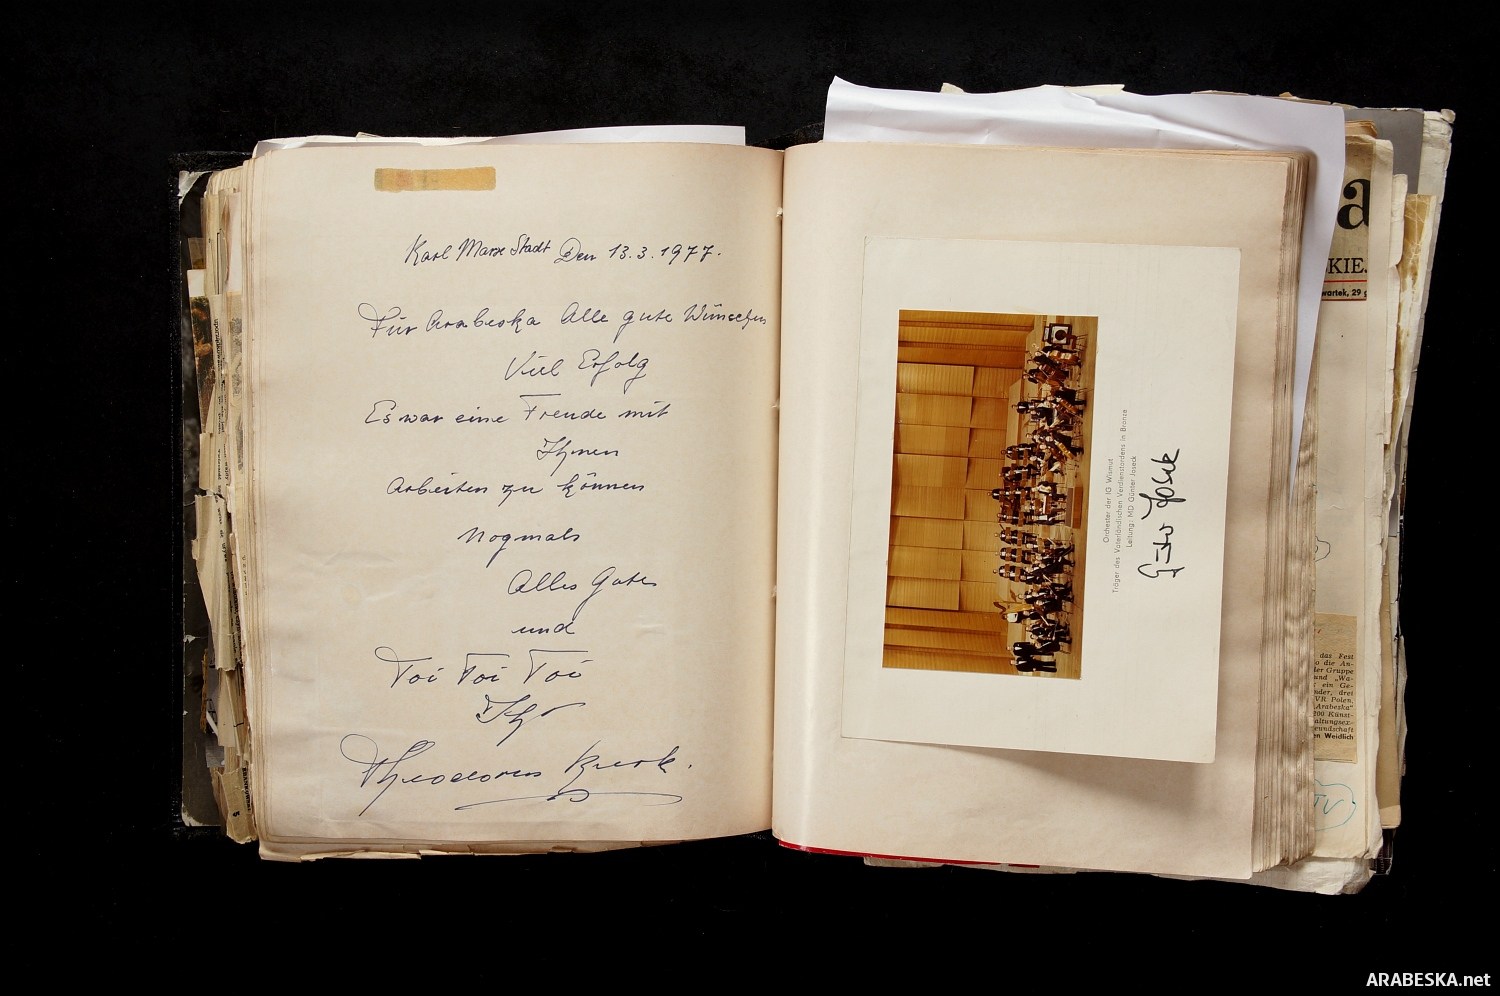 Karl Marx Stadt Den 13.3.1977.
Für Arabeska Alle gute Wünschen
Viel Erfolg
Es war eine Freude mit
Ihnen
Arbeiten zu können
Nogmals
Alles Gutes
und
Toi Toi Toi
Ihr
Theodorus
Orchester der IG Wismut
Träger des Vaterländischen Verdienstordens in Bronze
Leitung: MD Günter Joseck
a
SKIE.
wartek, 29 g
das Fest
o die An-
der Gruppe
und „Wa-
ein Ge-
nder, drei
VR Polen,
Arabeska"
200 Künst-
altungsex-
eundschaft
en Weidlich
TV
ARABESKA.net